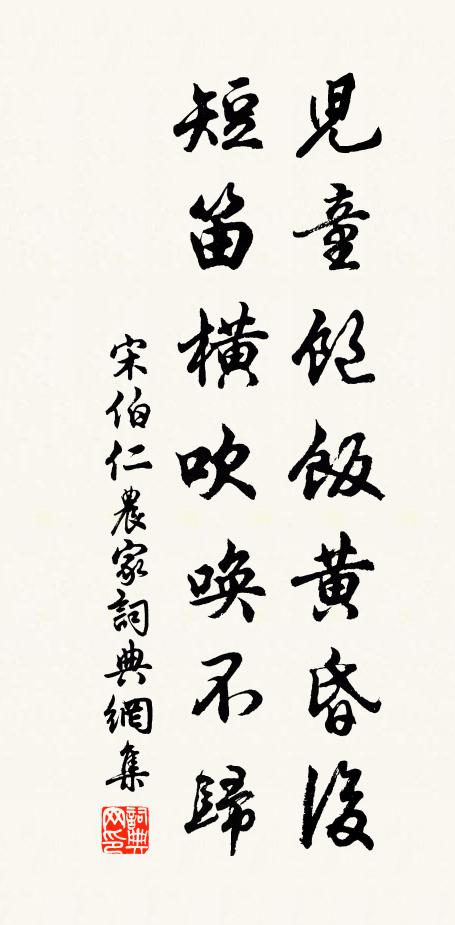 兒童飽飯黃昏後
短笛橫吹喚不歸
宋伯仁農家詞典網集
詞典網印